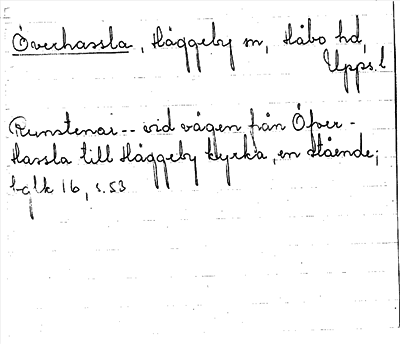 Överhassla, Häggeby sn, Håbo hd,
Upps. l
Runstenar -- vid vägen från Öfver-
Hassla till Häggeby kyrka, en stående;
16, s. 53